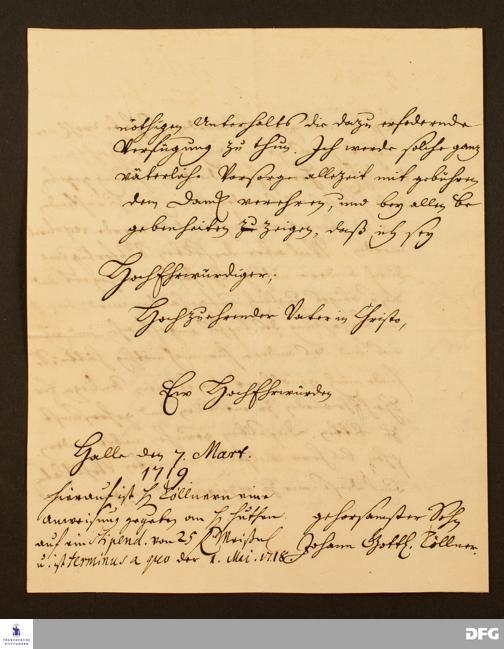 nöthigen Unterhalts die dazu erfodernde
Verfügung zu thun. Ich werde solche ganz
väterliche Vorsorge allezeit mit gebühren
dem Danck verehren, und bey allen be
gebenheiten zu zeigen, daß ich sey
HochEhrwürdiger,
Hochzuehrender Vater in Christo,
Ew HochEhrwürden
Halle den 7. Mart.
1719
gehorsamster Sohn
Johann Gottl. Töllner.
hierauf ist H Töllnern eine
anweisung gegeben an H Huthen
auf ein Stipend. von 25
u. ist terminus a quo der 1. Mei. 1718.
FRANCKESCHE STIFTUNGEN
DFG